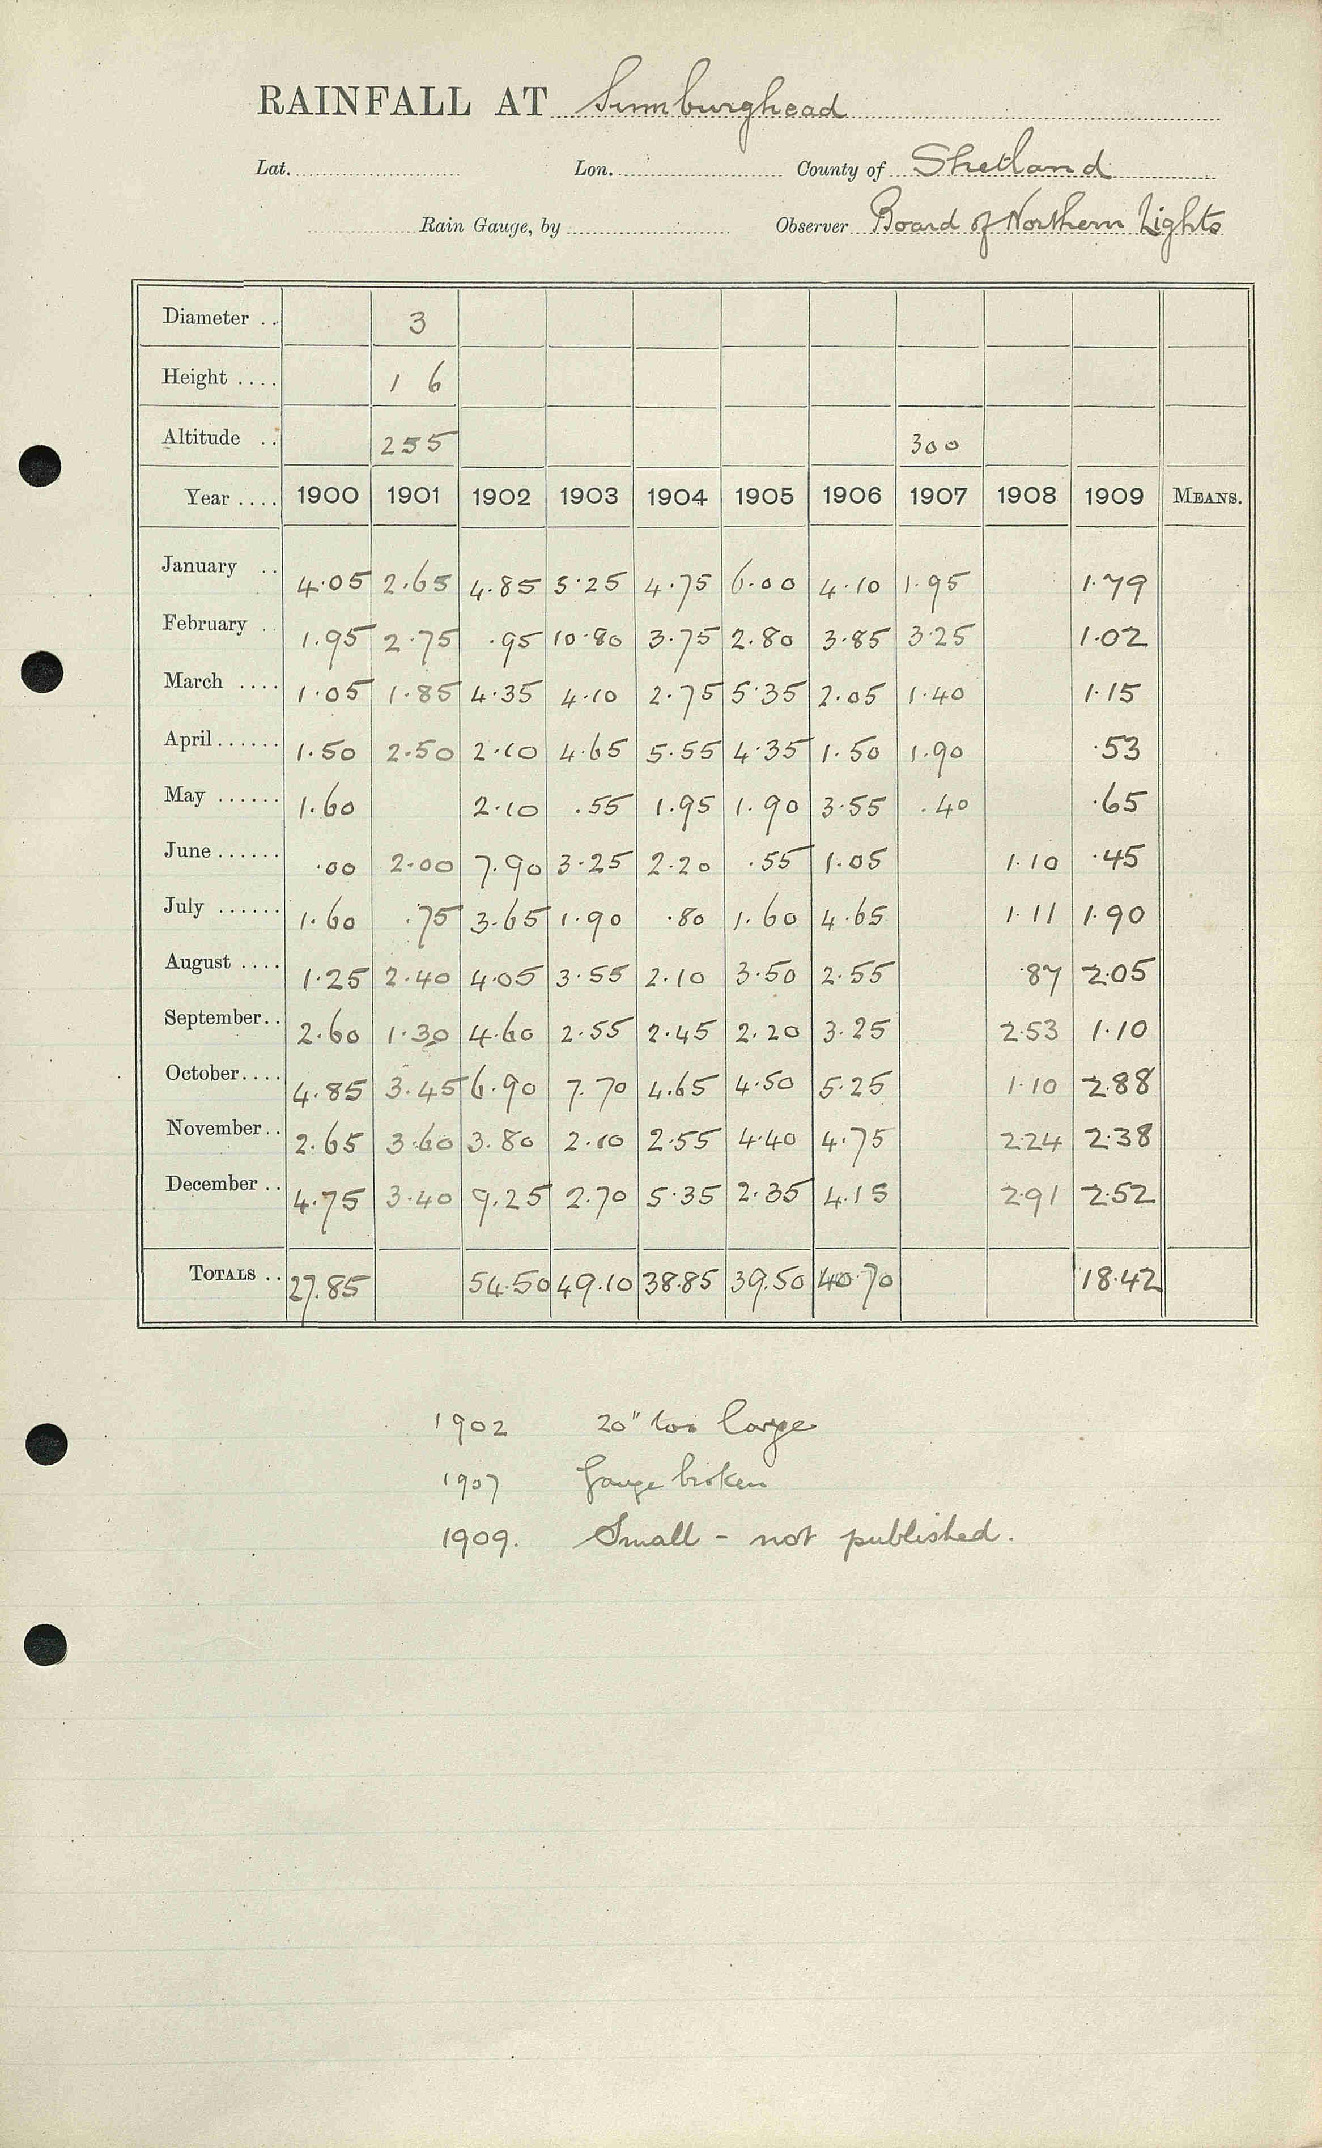 RAINFALL AT Sumburghead
Lat. Lon. County of Shetland
Rain Gauge, by Observer Board of Northern Lights
Diameter .. 3
Height .... 1 6
Altitude .. 255 300
Year .... 1900 1901 1902 1903 1904 1905 1906 1907 1908 1909 MEANS.
January .. 4.05 2.65 4.85 5.25 4.75 6.00 4.10 1.95 1.79
February .. 1.95 2.75 .95 10.80 3.75 2.80 3.85 3.25 1.02
March .... 1.05 1.85 4.35 4.10 2.75 5.35 2.05 1.40 1.15
April...... 1.50 2.50 2.10 4.65 5.55 4.35 1.50 1.90 .53
May ...... 1.60 2.10 .55 1.95 1.90 3.55 .40 .65
June...... .00 2.00 7.90 3.25 2.20 .55 1.05 1.10 .45
July ...... 1.60 .75 3.65 1.90 .80 1.60 4.65 1.11 1.90
August .... 1.25 2.40 4.05 3.55 2.10 3.50 2.55 .87 2.05
September.. 2.60 1.30 4.60 2.55 2.45 2.20 3.25 2.53 1.10
October.... 4.85 3.45 6.90 7.70 4.65 4.50 5.25 1.10 2.88
November.. 2.65 3.60 3.80 2.10 2.55 4.40 4.75 2.24 2.38
December .. 4.75 3.40 9.25 2.70 5.35 2.35 4.15 2.91 2.52
TOTALS .. 27.85 54.50 49.10 38.85 39.50 40.70 18.42
1902 20" too large
1907 Gauge broken
1909. Small - not published.